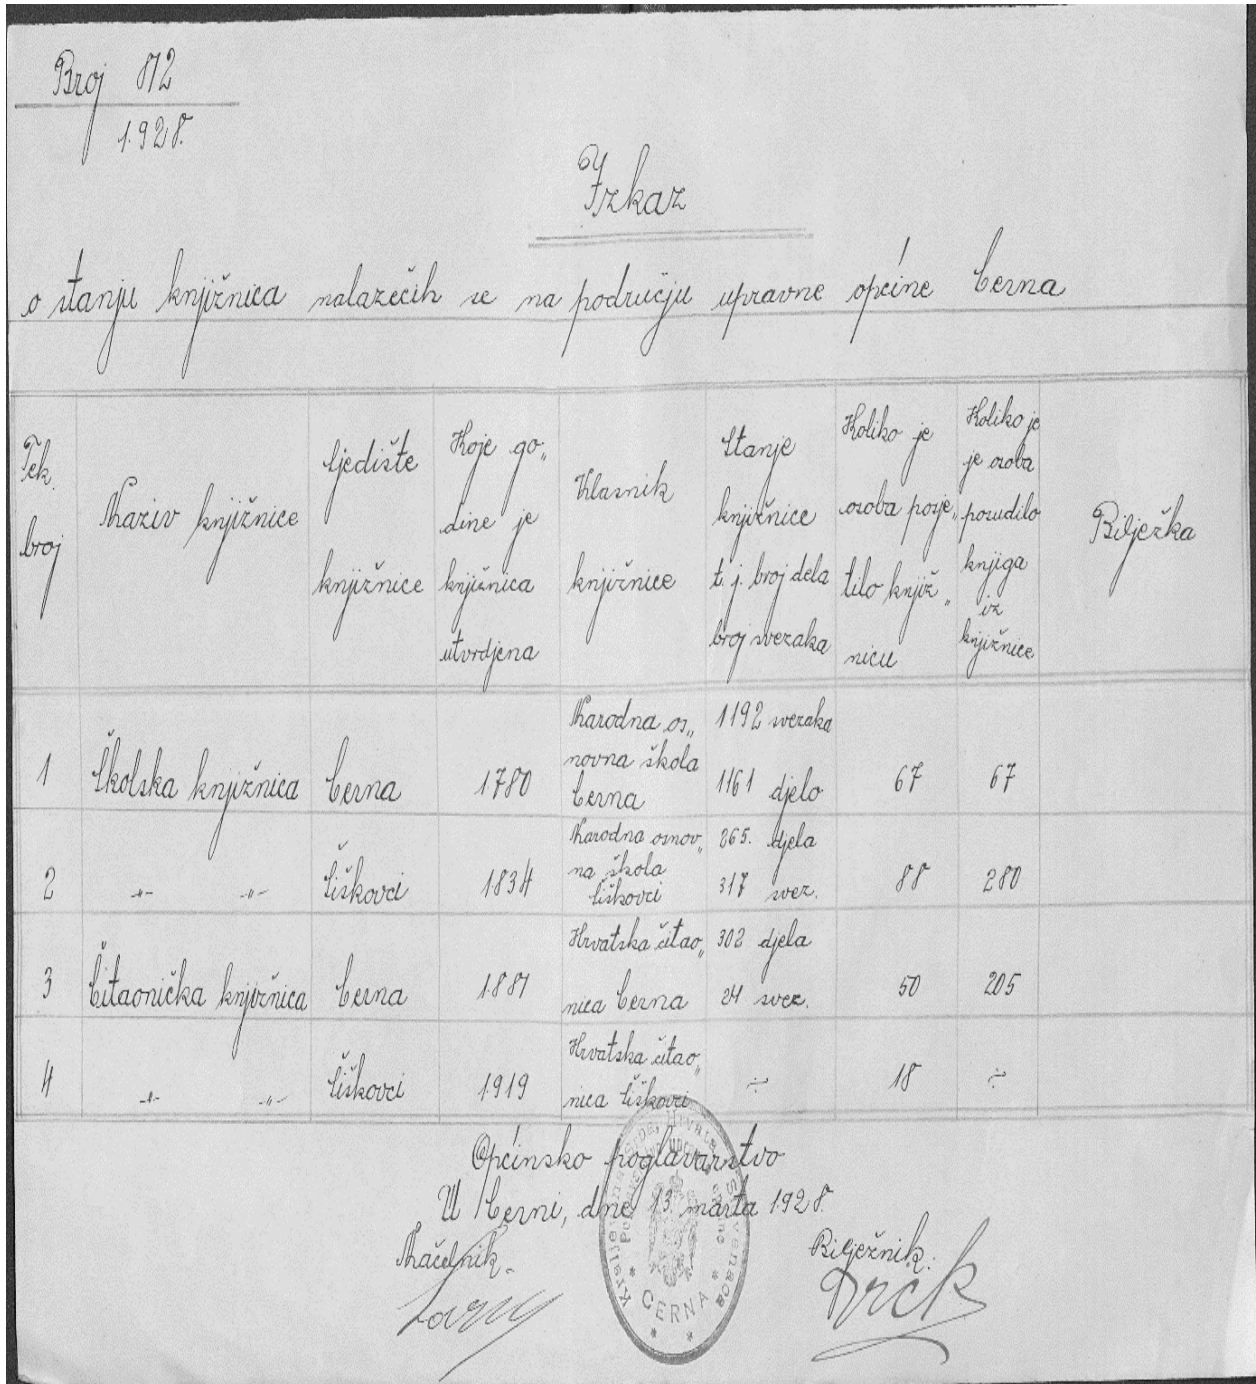 Broj 872
1928.
Izkaz
o stanju knjižnica nalazečih se na području upravne općine Cerna
Tek. broj
Naziv knjižnice
Sjedište knjižnice
Koje go„
dine je
knjižnica
utvrdjena
Vlasnik
knjižnice
Stanje
knjižnice
t. j. broj dela
broj svezaka
Koliko je
osoba posje„
tilo knjiž„
nicu
Koliko je
je osoba
posudilo
knjiga
iz
knjižnice
Bilježka
1 Školska knjižnica Cerna 1780
Narodna os„
novna škola
Cerna
1192 svezaka
1161 djelo
67 67
2 -„- -„- Šiškovci 1834
Narodna osnov„
na škola
Šiškovci
265. djela
317 svez.
88 280
3 Čitaonička knjižnica Cerna 1881
Hrvatska čitao„
nica Cerna
302 djela
24 svez.
50 205
4 -„- -„- Šiškovci 1919
Hrvatska čitao„
nica Šiškovci
÷ 18 ÷
Općinsko poglavarstvo
U Cerni, dne 13. marta 1928.
Načelnik.
Bilježnik:
CERNA